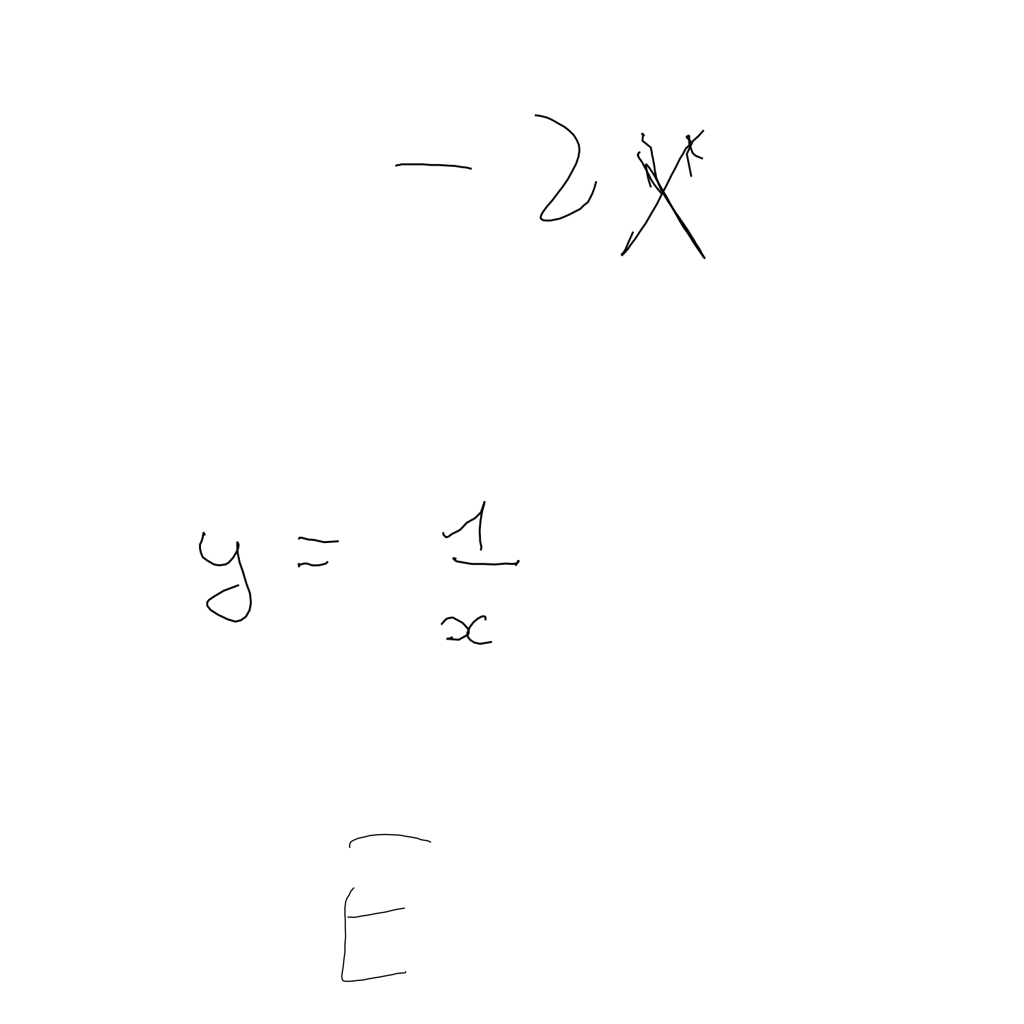 - 2x
y = 1/x
E